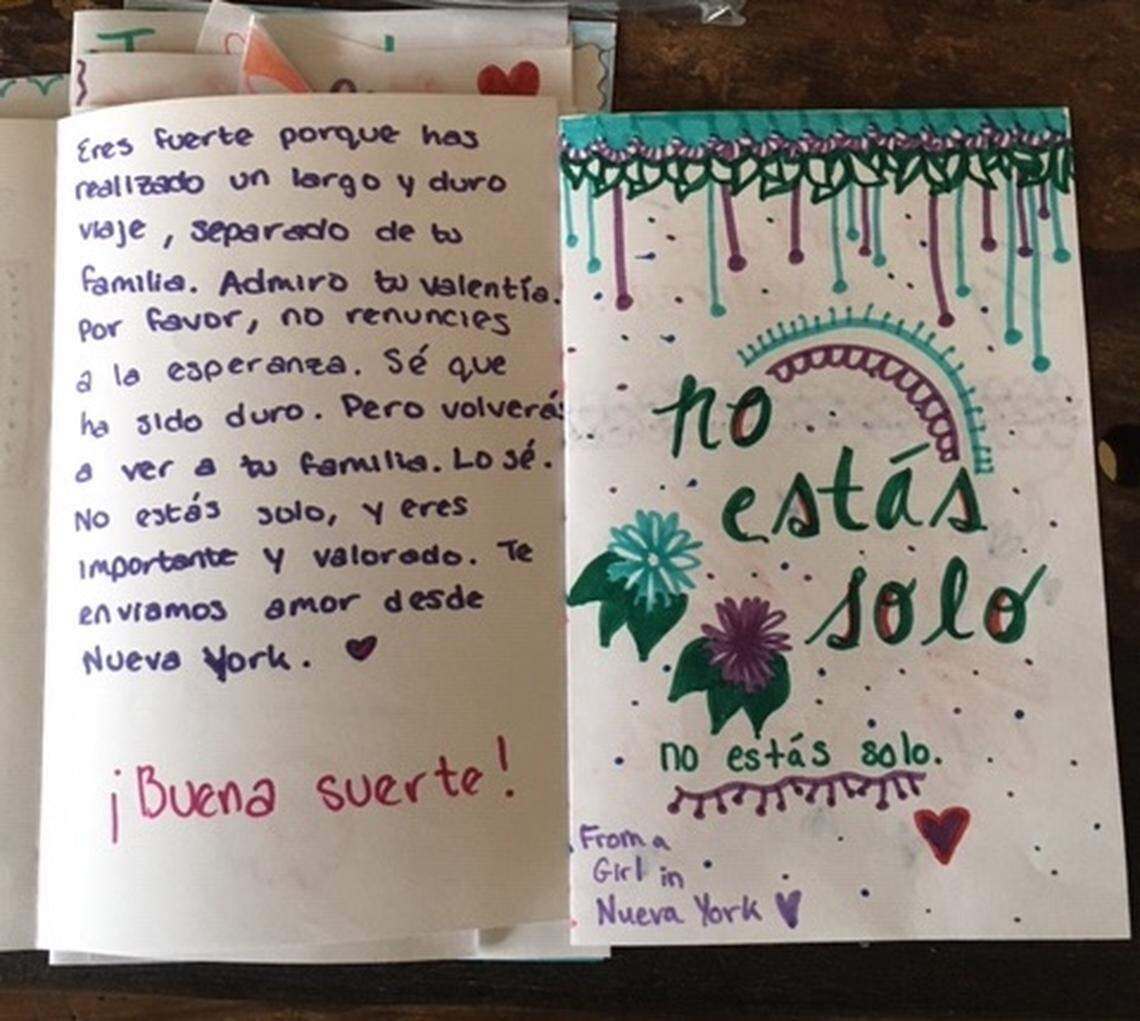 Eres fuerte porque has
realizado un largo y duro
viaje, separado de tu
familia. Admiro tu valentía.
Por favor, no renuncies
a la esperanza. Sé que
ha sido duro. Pero volverás
a ver a tu familia. Lo sé.
No estás solo, y eres
importante y valorado. Te
enviamos amor desde
Nueva York.
¡Buena suerte!
no
estás
solo
no estás solo.
From a
Girl in
Nueva York